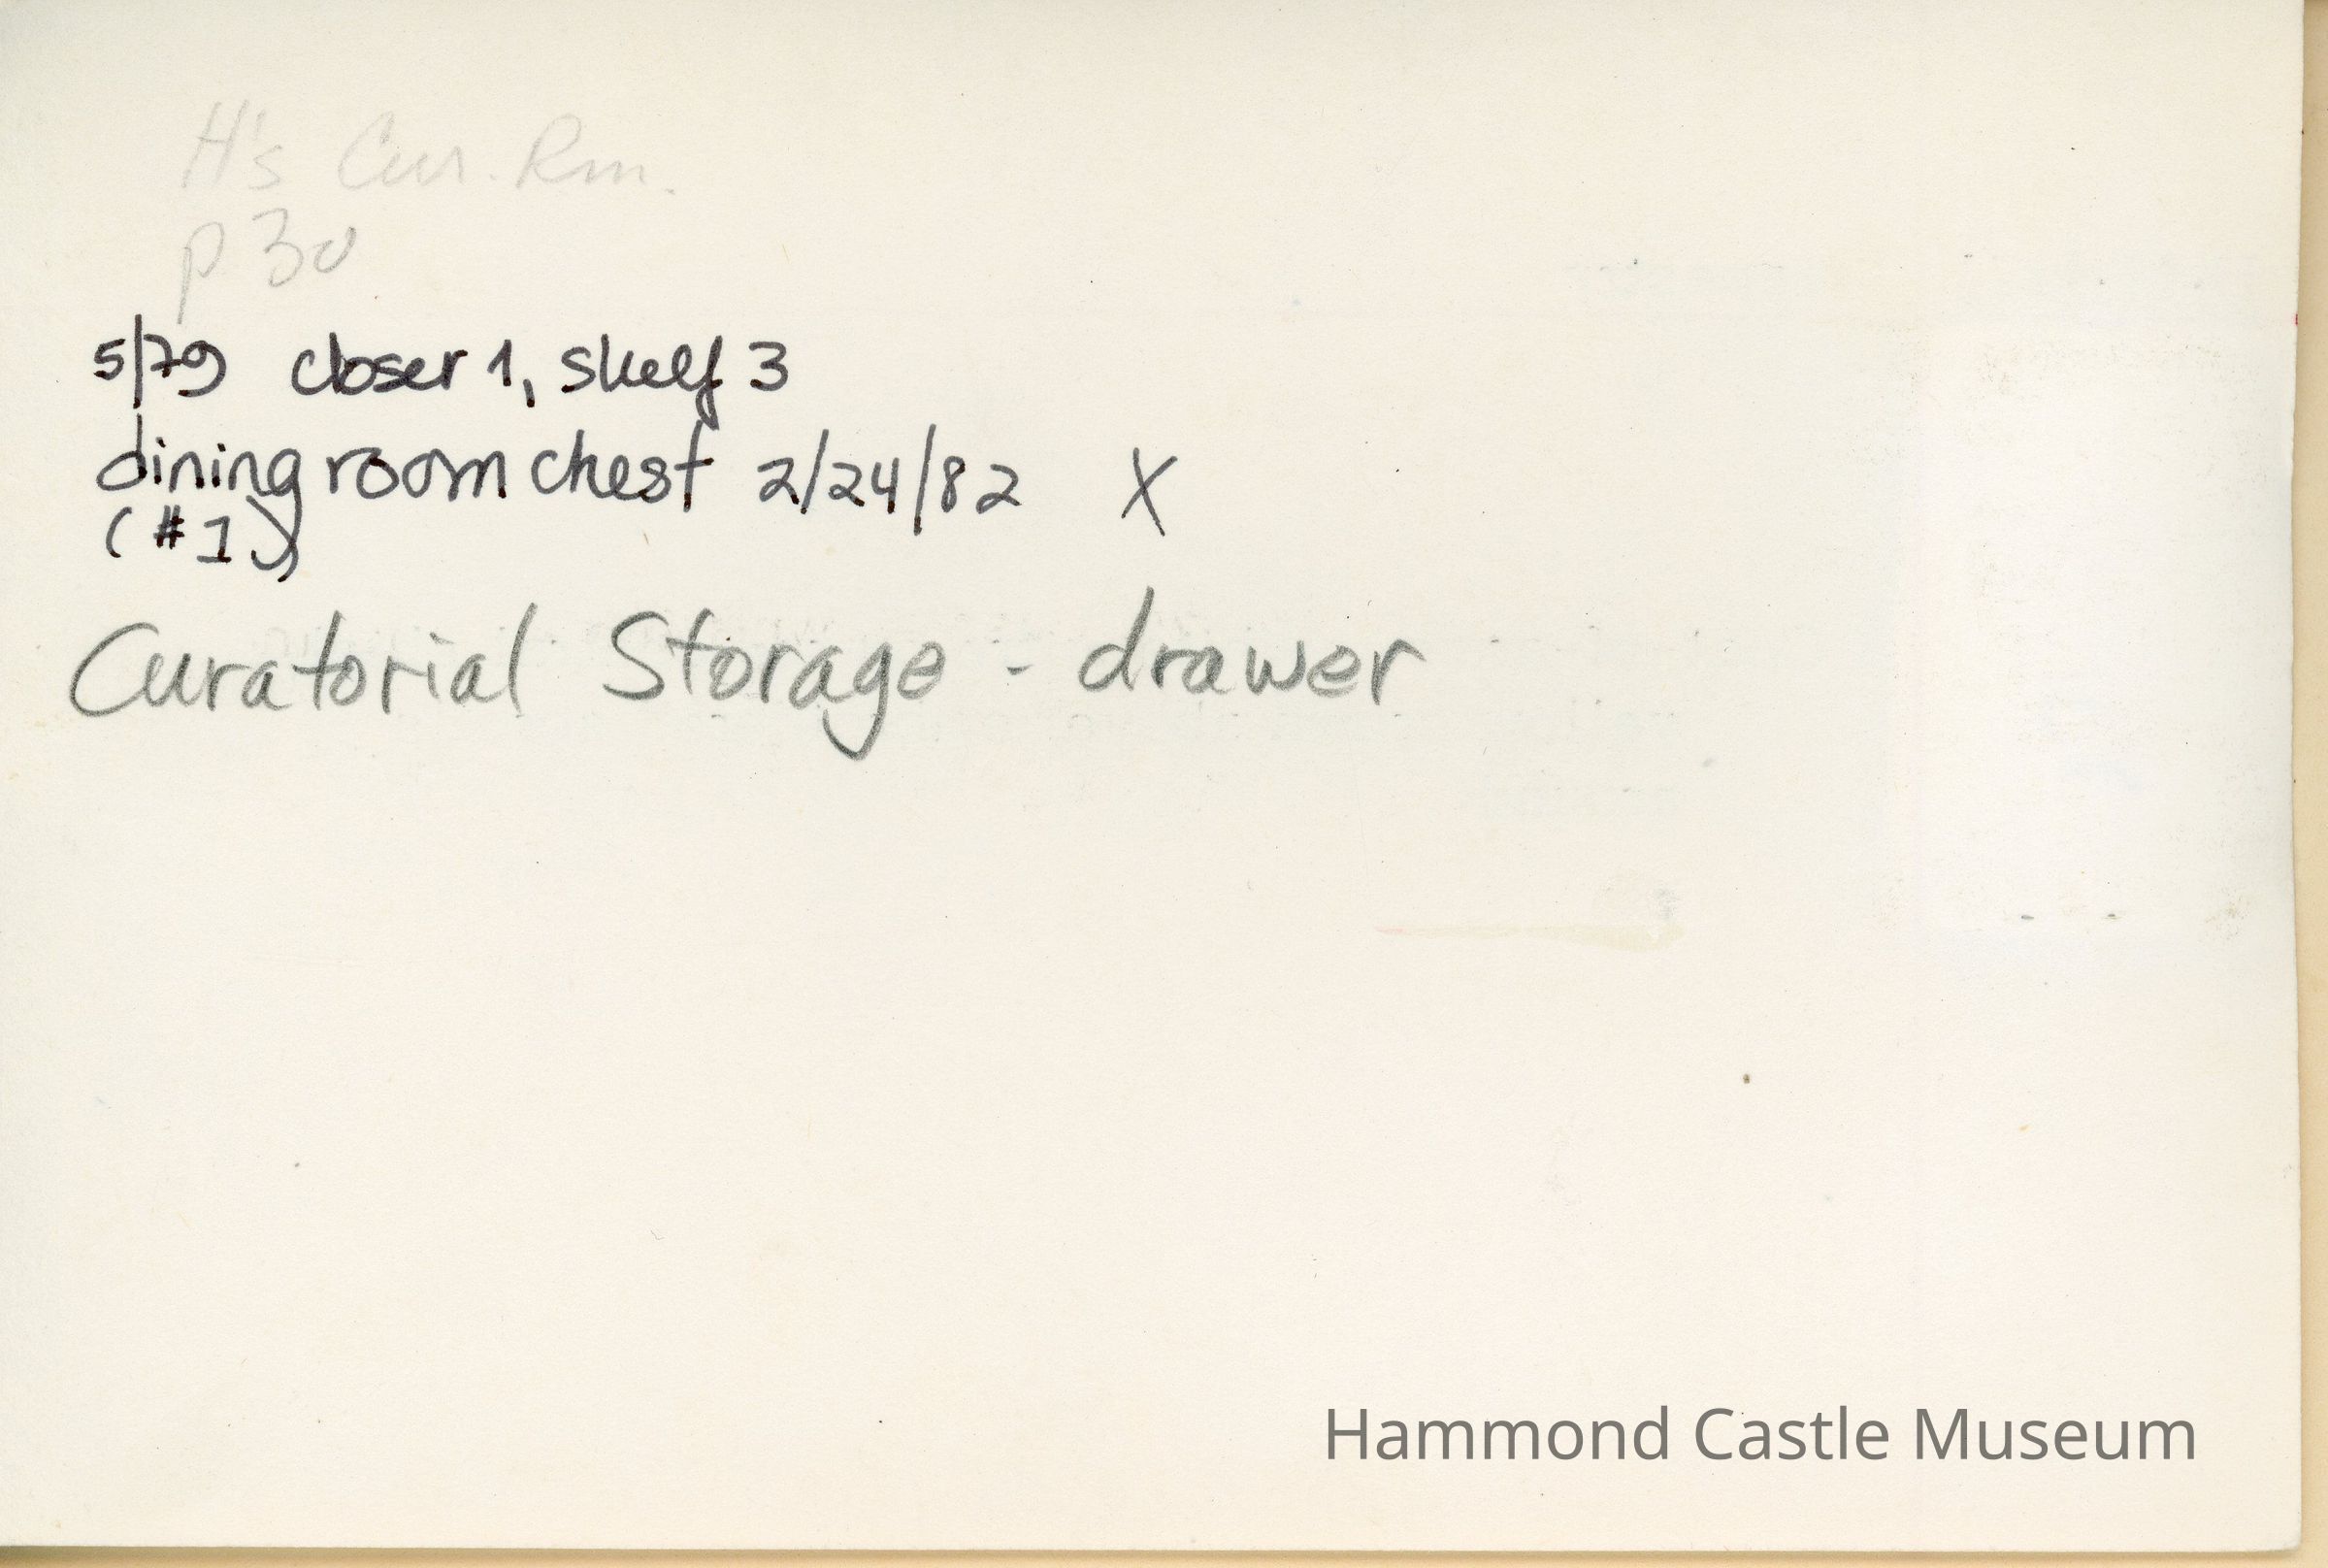 H's Cur. Rm.
p 30
5/79 closer 1, shelf 3
dining room chest 2/24/82 X
(#1)
Curatorial Storage - drawer
Hammond Castle Museum